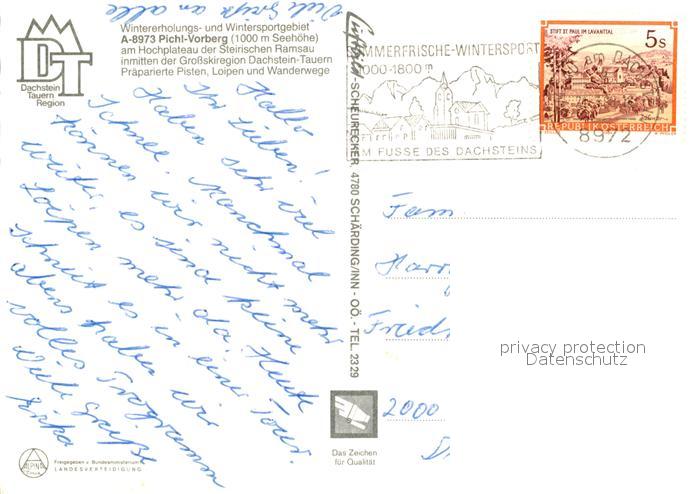 Viele Grüße an alle
Wintererholungs- und Wintersportgebiet
A-8973 Pichl-Vorberg (1000 m Seehöhe)
am Hochplateau der Steirischen Ramsau
inmitten der Großskiregion Dachstein-Tauern
Präparierte Pisten, Loipen und Wanderwege
DT
Dachstein
Tauern
Region
Hallo
Ihr Lieben!
Haben sehr viel
Schnee. Manchmal
können wir nicht mehr
weiter es sind keine
Loipen mehr da. Heute
schneit es in einer Tour.
abens haben wir
volles Programm
Viele Grüße
SCHEURECKER, 4780 SCHÄRDING/INN - OÖ. - TEL. 2329
SOMMERFRISCHE-WINTERSPORT
1000-1800 m
AM FUSSE DES DACHSTEINS
8972
STIFT ST. PAUL IM LAVANTTAL
5s
REPUBLIK ÖSTERREICH
Fam
Harr
Fried
2000
privacy protection
Datenschutz
Das Zeichen
für Qualität
ALPINA
Freigegeben v. Bundesministerium f.
LANDESVERTEIDIGUNG